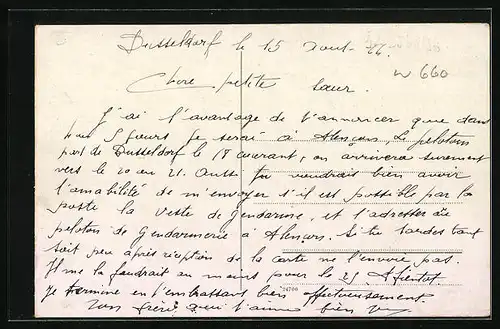 Dusseldorf le 15 Aout 26.
w 660
Chere petite sœur.
J'ai l'avantage de t'annoncer que dans
5 jours je serai à Alençon, le peloton
part de Dusseldorf le 17 courant, on arrivera surement
vers le 20 ou 21. Aussi tu voudrais bien avoir
l'amabilité de m'envoyer s'il est possible par la
poste la veste de Gendarme, et l'adresser au
peloton de Gendarmerie à Alençon. Si tu tardes tant
soit peu après réception de la carte ne l'envoie pas.
Il me la faudrait au moins pour le 25. A bientot.
Je termine en t'embrassant bien affectueusement.
24706
Ton frère qui t'aime bien